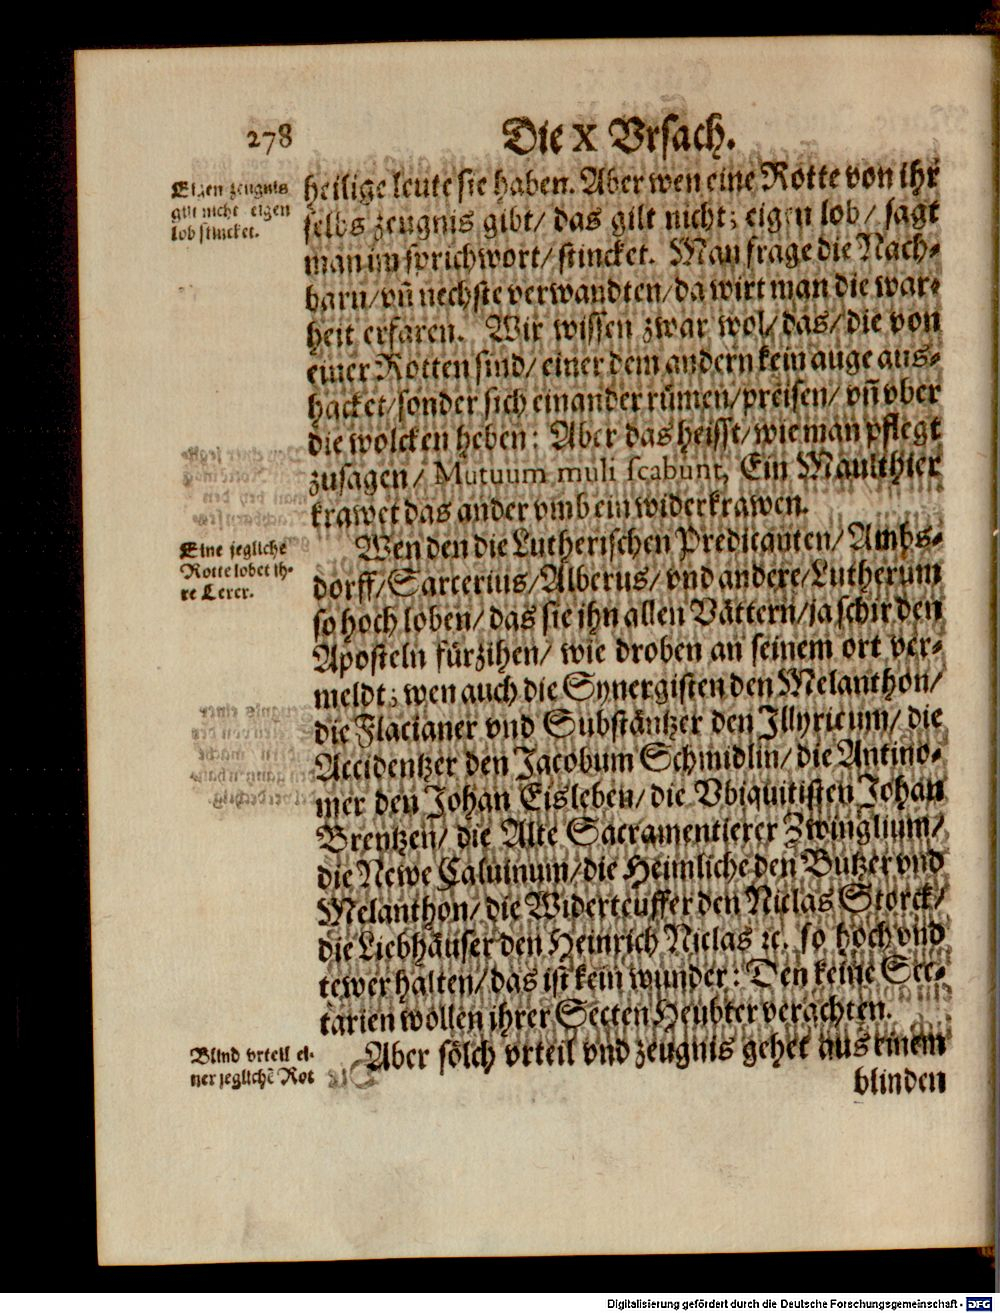 278
Die X Vrsach.
Eigen zeugnis
gilt nicht eigen
lob stincket.
heilige leute sie haben. Aber wen eine Rotte von ihr
selbs zeugnis gibt/ das gilt nicht; eigen lob/ sagt
man im sprichwort/ stincket. Man frage die Nach-
barn/ vñ nechste verwandten/ da wirt man die war-
heit erfaren. Wir wissen zwar wol/ das/ die von
einer Rotten sind/ einer dem andern kein auge aus-
hacket/ sonder sich einander rümen/ preisen/ vñ vber
die wolcken heben: Aber das heisst/ wie man pflegt
zusagen/ Mutuum muli scabunt, Ein Maulthier
krawet das ander vmb ein widerkrawen.
Eine jegliche
Rotte lobet ih-
re Lerer.
Wen den die Lutherischen Predicanten/ Ambs-
dorff/ Sarcerius/ Alberus/ vnd andere/ Lutherum
so hoch loben/ das sie ihn allen Vättern/ ja schir den
Aposteln fürzihen/ wie droben an seinem ort ver-
meldt; wen auch die Synergisten den Melanthon/
die Flacianer vnd Substäntzer den Illyricum/ die
Accidentzer den Jacobum Schmidlin/ die Antino-
mer den Johan Eisleben/ die Vbiquitisten Johan
Brentzen/ die Alte Sacramentierer Zwinglium/
die Newe Caluinum/ die Heimliche den Butzer vnd
Melanthon/ die Widerteuffer den Niclas Storck/
die Liebhäuser den Heinrich Niclas ꝛc. so hoch vnd
tewer halten/ das ist kein wunder: Den keine Sec-
tarien wollen ihrer Secten Heubter verachten.
Blind vrteil ei-
ner jeglichẽ Rot
Aber sölch vrteil vnd zeugnis gehet aus einem
blinden
Digitalisierung gefördert durch die Deutsche Forschungsgemeinschaft - DFG